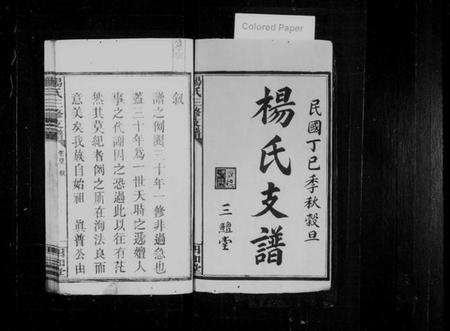 Colored Paper
民國丁巳季秋穀旦
楊氏支譜
三鱣堂
敘
譜之例閱三十年一修非過急也
蓋三十年為一世天時之遞嬗人
事之代謝因之恐過此以往有茫
然其莫紀者例之所在洵法良而
意美矣我族自始祖 真普公由
楊氏三修支譜